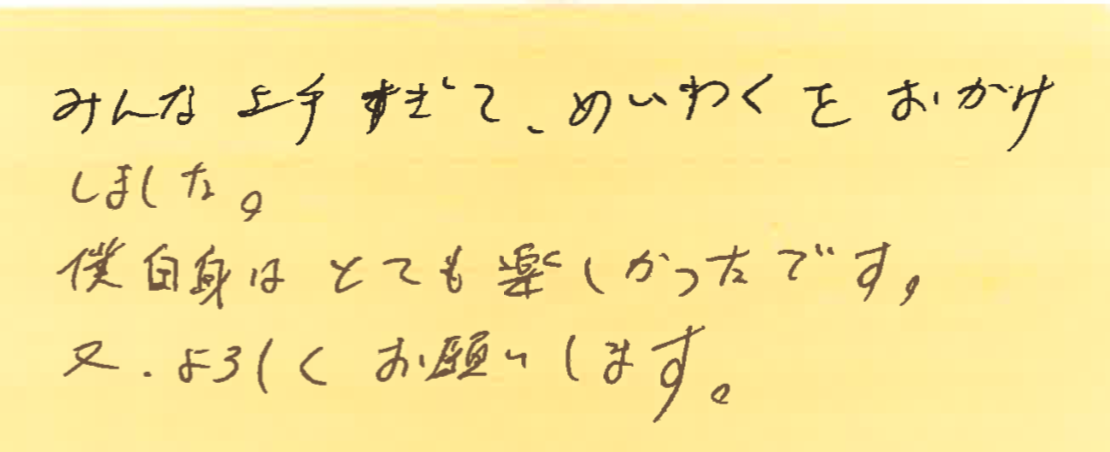 みんな上手すぎて、めいわくをおかけ
しました。
僕自身はとても楽しかったです。
又、よろしくお願いします。